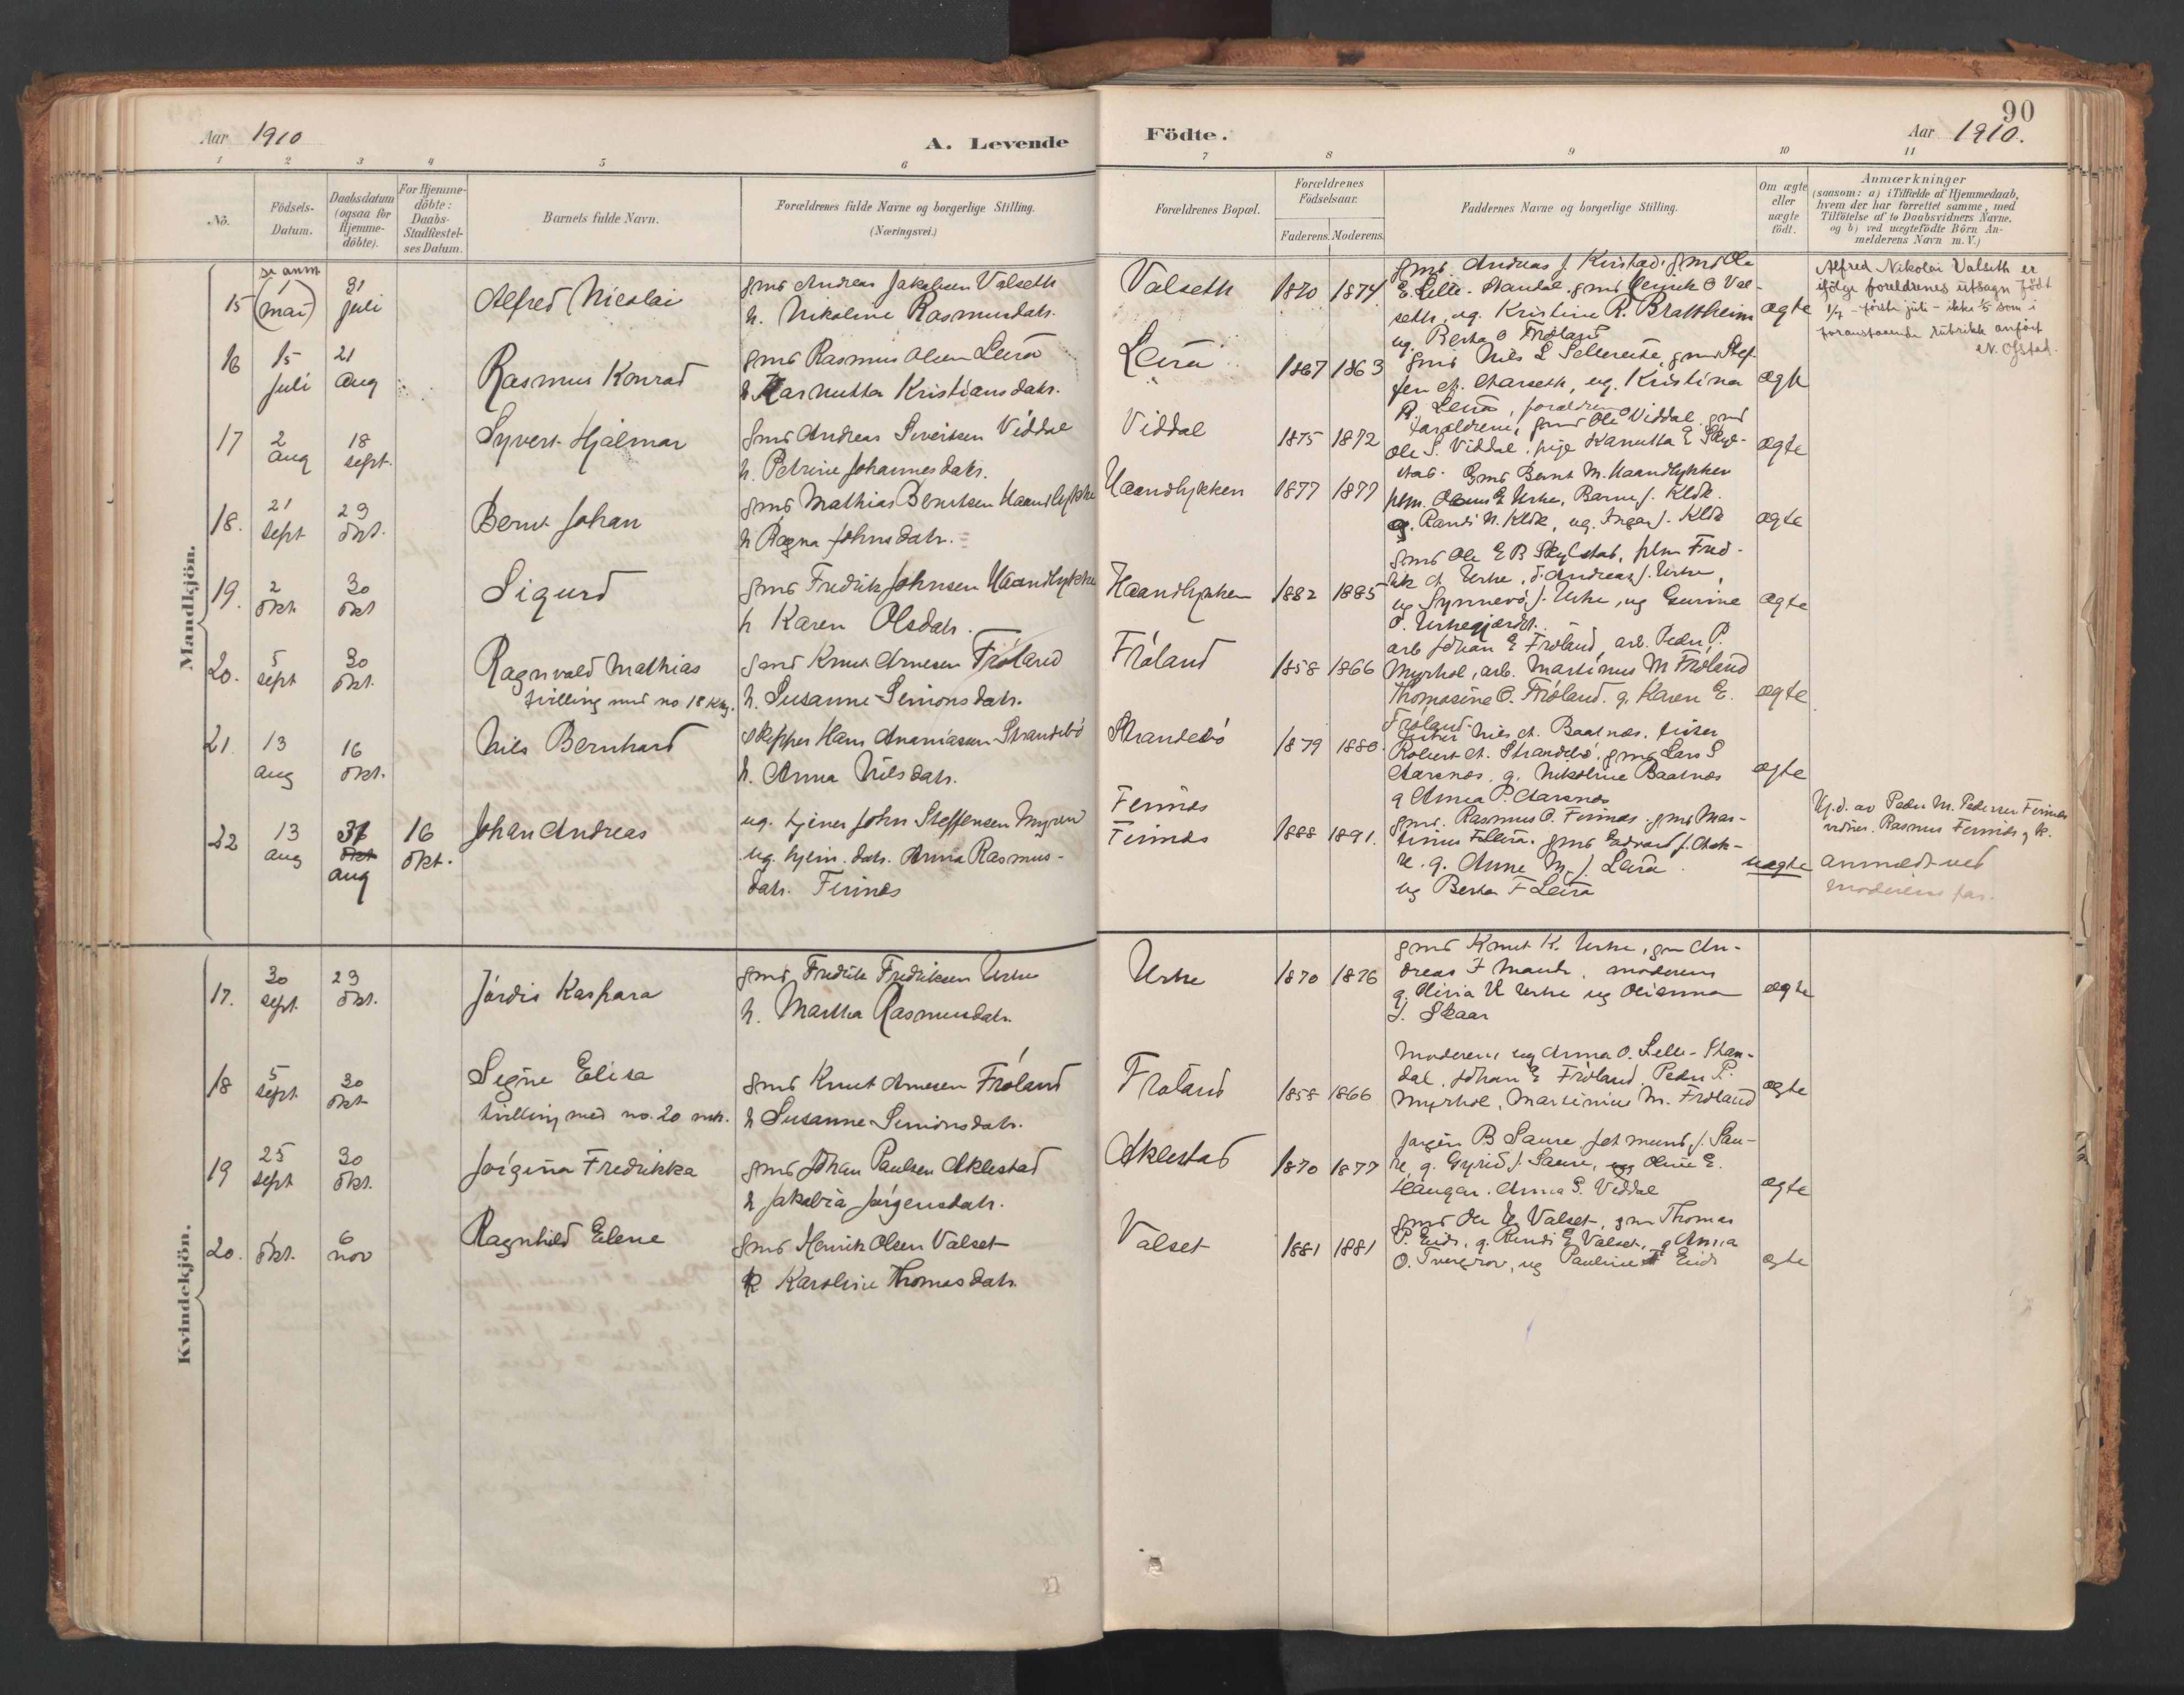 90
Aar 1910
A. Levende
Födte.
Aar 1910.
1 2 3 4 5 6 7 8 9 10 11
No.
Födsels-
Datum.
Daabsdatum
(ogsaa for
Hjemme-
döbte).
For Hjemme-
döbte:
Daabs-
Stadfæstel-
ses Datum.
Barnets fulde Navn.
Forældrenes fulde Navne og borgerlige Stilling.
(Næringsvei.)
Forældrenes Bopæl.
Forældrenes
Födselsaar.
Faderens. Moderens.
Faddernes Navne og borgerlige Stilling.
Om ægte
eller
uægte
födt.
Anmærkninger
(saasom: a) i Tilfælde af Hjemmedaab,
hvem der har forrettet samme, med
Tilföielse af to Daabsvidners Navne.
og b) ved uægtefödte Börn An-
melderens Navn m. V.)
Mandkjön.
se anm
15 (1 mai) 31 juli
Alfred Nicolai
gmd Andreas Jakobsen Valseth
h. Nikoline Rasmusdatr.
Valseth 1870 1874
gmd. Andreas J. Kirstad. gmd Ole
E. Lille-Standal. gmd Henrik O Val-
seth, ug. Kristine R. Brattheim
ug. Berta O Fröland
ægte
Alfred Nikolai Valseth er
ifölge foreldrenes utsagn född
1/7 - förste juli - ikke 1/5 som i
foranstaaende rubrikk anfört
N. Ofstad.
16 15 juli 21 aug
Rasmus Konrad
gmd Rasmus Olsen Leira
h Karnutta Kristiansdatr.
Leira 1867 1863
gmd Nils L Sellereite, gmd Stef-
fen A. Aarseth, ug. Kristina
R. Leira, forældrene
ægte
17 2 aug 18 sept.
Syvert Hjalmar
gmd Andreas Siveitsen Viddal
h. Petrine Johannesdatr.
Viddal 1875 1872
Forældrene, gmd Ole Viddal. gmd
Ole S. Viddal, pige Kanutta E Skyl-
stad.
ægte
18. 21 sept 23 okt.
Bernt Johan
gmd Mathias Berntsen Haandlykke
h Ragna Johnsdatr.
Haandlykken 1877 1877
Gmd Bernt M. Haandlykken
g. Randi N. Klök, ug. Inga J. Klök
ægte
19. 2 okt. 30 okt
Sigurd
gmd Fredrik Johnsen Haandlykke
h Karen Olsdatr.
Haandlykken 1882 1885
gmd Ole E B Skylstad, plm Fred-
rik A Urke, d. Andreas J. Urke,
ug Synnevö J. Urke, ug Gurine
O. Urkegjærdet.
ægte
20. 5 sept 30 okt.
Ragnvald Mathias
tvilling med no 18 Kkj.
gmd Knut Arnesen Fröland
h. Susanne Simonsdatr.
Fröland 1858 1866
arb Johan E Fröland, arb. Peder P.
Myrhol, arb. Martinus M Fröland
Thomasine O. Fröland. g. Karen E.
Fröland
ægte
21. 13 aug 16 okt.
Nils Bernhard
skipper Hans Ananiasen Strandebö
h. Anna Nilsdatr.
Strandebö 1879 1880.
fisker Nils A. Baatnæs, fisker
Robert A. Strandebö, gmd Lars S
Aarsnæs, g. Nikoline Baatnæs
g Anna P. Aarsnæs
ægte
22 13 aug 31 okt aug 16 okt.
Johan Andreas
ug. tjener John Steffensen Myren
ug. hjem. datr. Anna Rasmus-
datr. Finnæs
Finnæs
Finnæs 1888 1891.
gmd. Rasmus O. Finnæs. gmd Mar-
tinus F Leira. gmd Edvard J. Aak-
re. g. Anne M. J. Leira
ug Berta F Leira
uægte
Hj.d. av Peder M. Pedersen Finnæs
vidner. Rasmus Finnæs g h.
anmeldt ved
moderens far.
Kvindekjön.
17. 30 sept. 23 okt.
Jördis Kaspara
gmd Fredrik Fredriksen Urke
h. Martha Rasmusdatr.
Urke 1870 1876
gmd Knut K. Urke, gm An-
dreas F Maude, moderen
g. Olivia K Urke ug Olianna
J. Skaar
ægte
18 5 sept 30 okt
Signe Elisa
tvilling med no. 20 mk.
gmd Knut Arnesen Fröland
h Susanne Simonsdatr.
Fröland 1858 1866
Moderen, ug Anna O. Lille-Stan-
dal, Johan E Fröland, Peder P.
Myrhol, Martinius M. Fröland
ægte
19 25 sept 30 okt.
Jörgina Fredrikka
gmd Johan Paulsen Aklestad
h Jakobia Jörgensdatr.
Aklestad 1870 1877
Jörgen B Saure, Jetmund J. Sau-
re, g. Gyrid J. Saure, ug Oline E.
Haugar. Anna S. Viddal
ægte
20. 1 okt. 6 nov
Ragnhild Elene
gmd Henrik Olsen Valset
h Karoline Thomasdatr.
Valset 1881 1881
gmd Ole H Valset, gm Thomas
P. Eide, g. Randi E Valset, g Anna
O. Tvergrov, ug Pauline T Eide
ægte